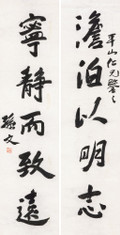 澹泊以明志
寧靜而致遠
孫文